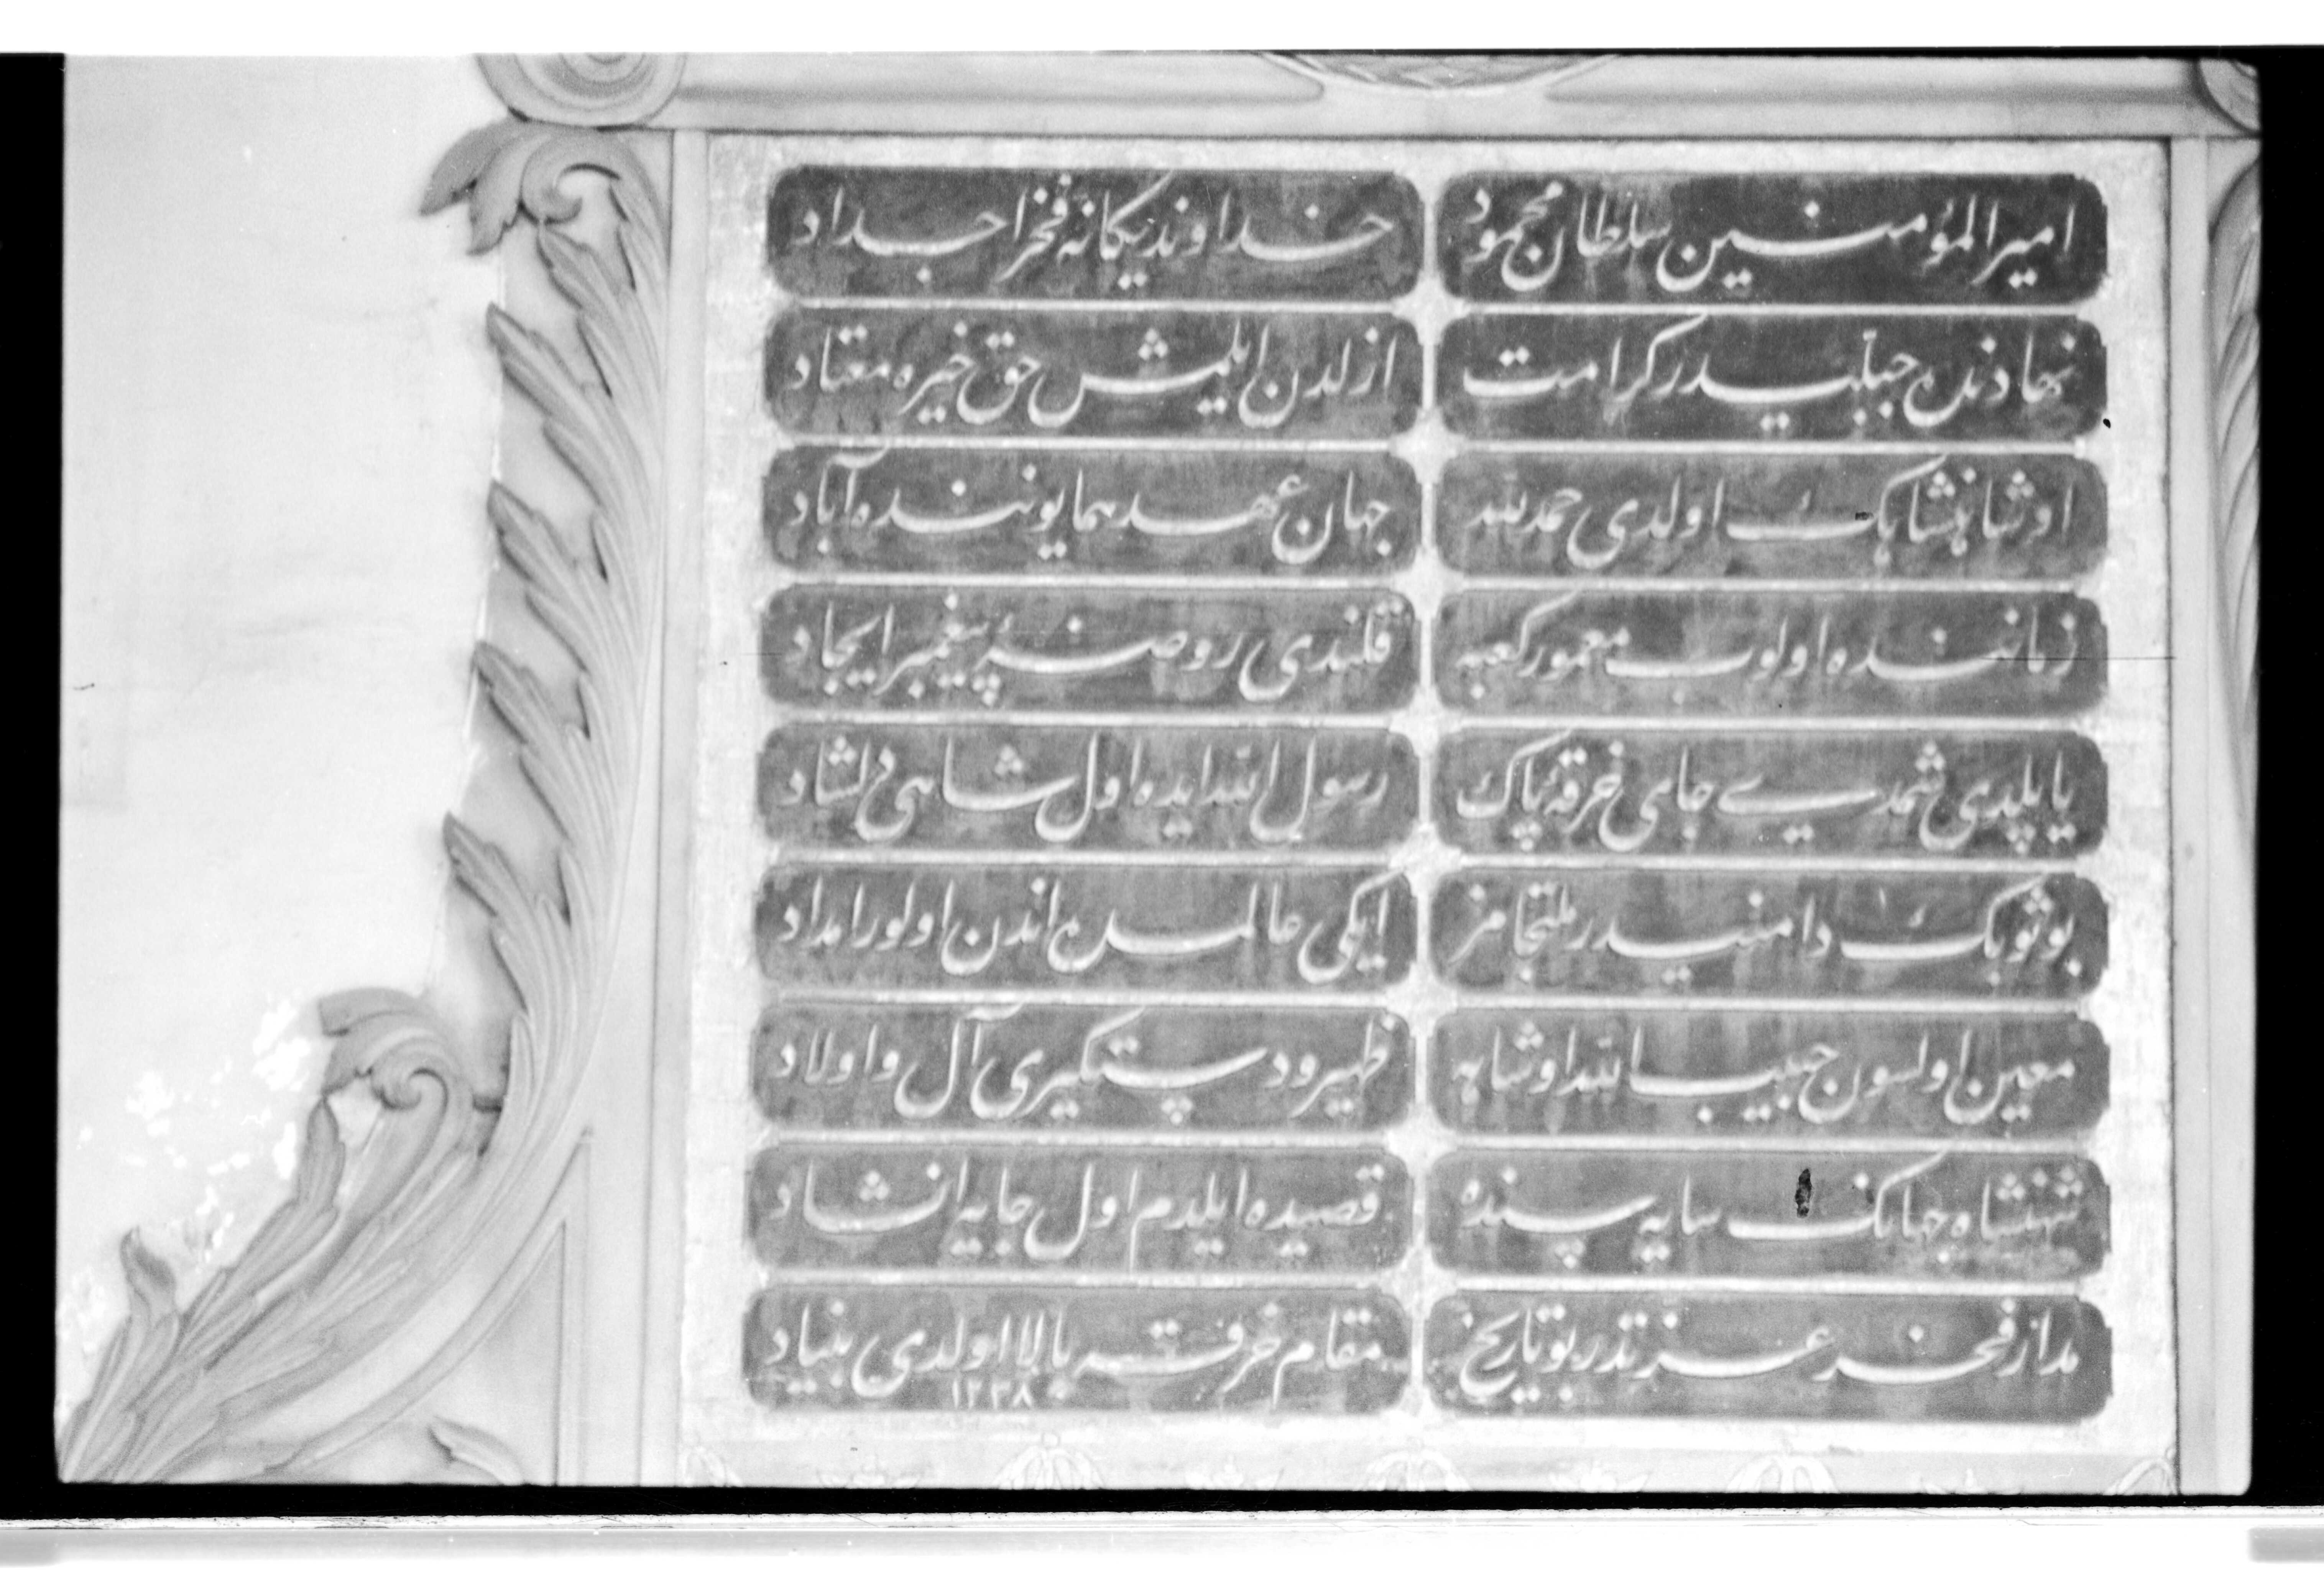 امير المؤمنين سلطان محمود
خداوند يكانه فخر اجداد
نهادنده جبليدر كرامت
ازلدن ايلمش حق خيره معتاد
او شاهنشاهك اولدى حمد لله
جهان عهد همايوننده آباد
زماننده اولوب معمور كعبه
قلندى روضۀ پيغمبر ايجاد
ياپلدى شمدى جاى خرقۀ پاك
رسول الله ايده اول شاهى دلشاد
بو ثوبك دامنيدر ملتجامز
ايكى عالمده اندن اولور امداد
معين اولسون حبيب الله او شاهه
ظهير و دستكيرى آل و اولاد
شهنشاه جهانك سايه سنده
قصيده ايلدم اول جايه انشاد
مدار فخر عزتدر بو تاريخ
مقام خرقه بالا اولدى بنياد
١٢٣٨